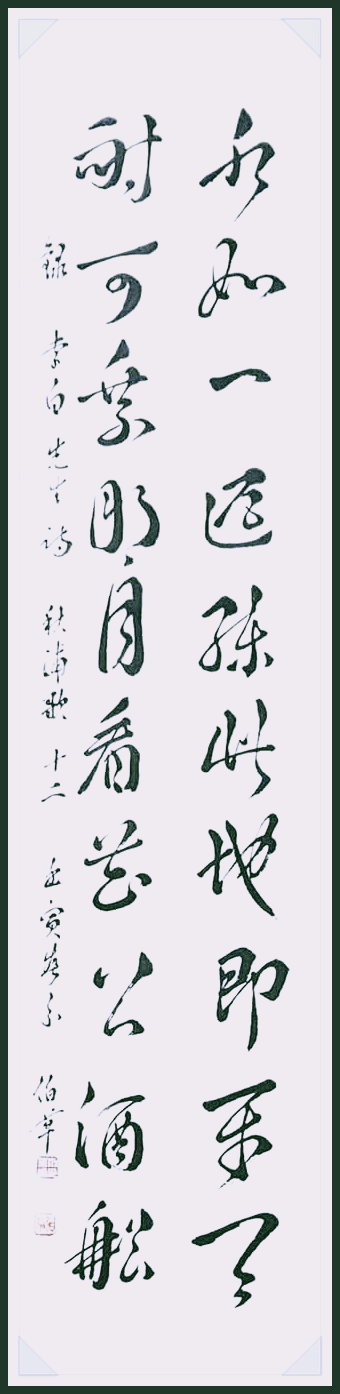 水如一匹練此地即平天
耐可乘明月看花上酒船
録 李白先生詩 秋浦歌 十二 壬寅 伯